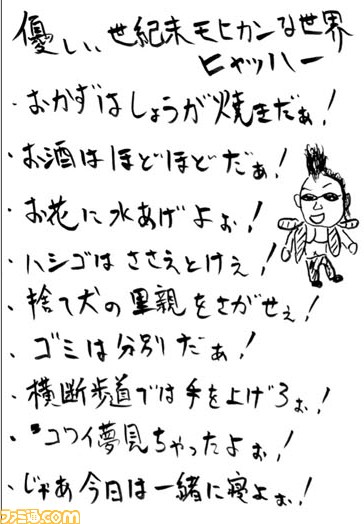 優しい、世紀末モヒカンな世界
ヒャッハー
・おかずはしょうが焼きだぁ!
・お酒はほどほどだぁ!
・お花に水あげよぉ!
・ハシゴはささえとけぇ!
・捨て犬の里親をさがせぇ!
・ゴミは分別だぁ!
・横断歩道では手を上げろぉ!
・コワイ夢見ちゃったよぉ!
・じゃあ今日は一緒に寝よぉ!
ファミ通.com